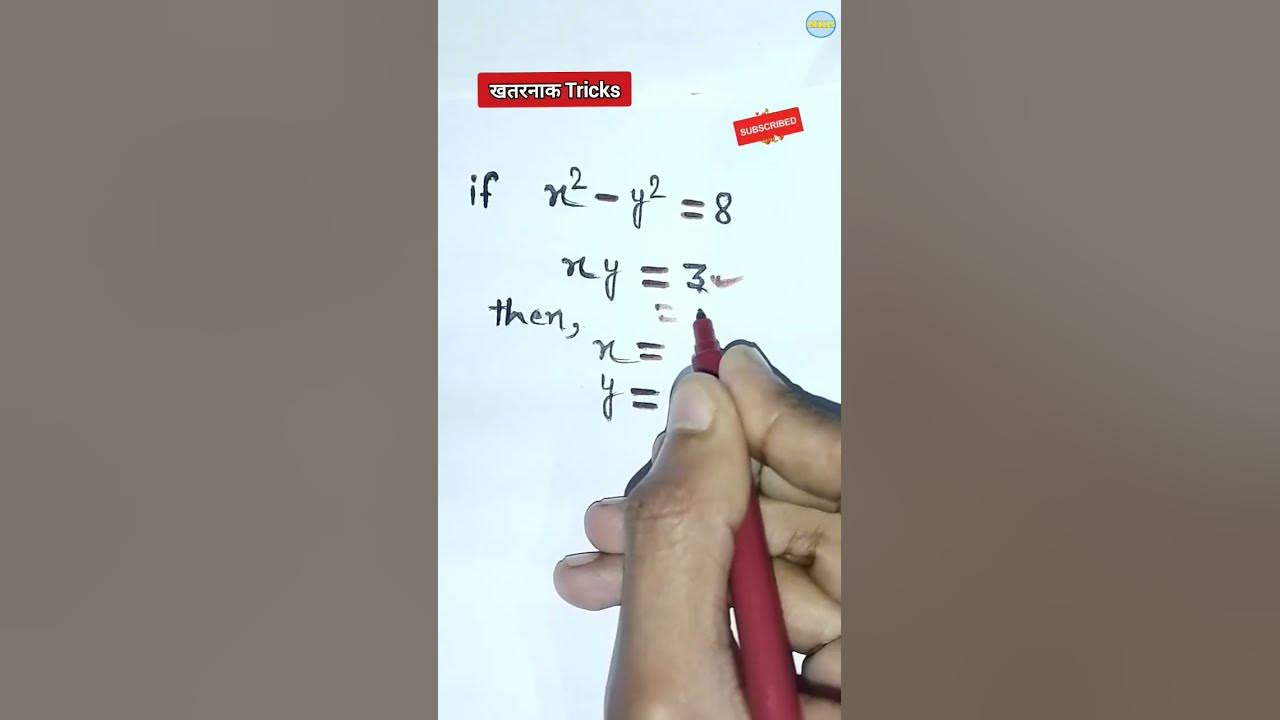 खतरनाक Tricks
SUBSCRIBED
if x² - y² = 8
xy = 3
then,
=
x =
y =